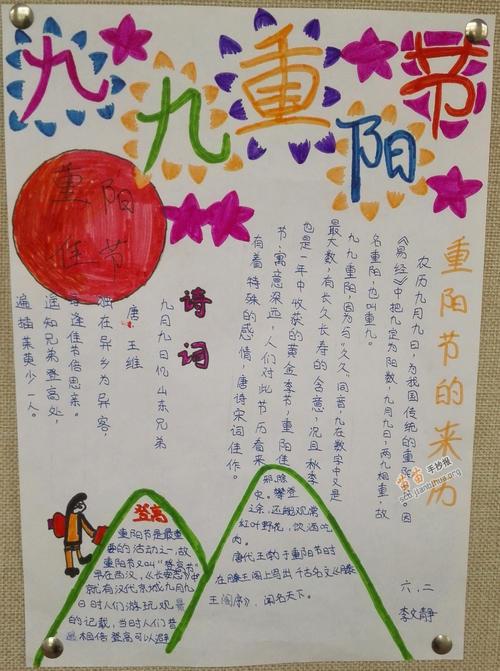 九九重阳节
重阳
佳节
重阳节的来历
农历九月九日,为我国传统的重阳 因
《易经》中把九定为阳数,九月九日,两九相重,故
名重阳,也叫重九。
九九重阳,因为与“久久”同音,九在数字中又是
最大数,有长久长寿的含意,况且秋季
也是一年中收获的黄金季节,重阳佳
节,寓意深远,人们对此节历看来
有着特殊的感情,唐诗宋词佳作。
诗词
九月九日忆山东兄弟
唐 王维
独在异乡为异客,
每逢佳节倍思亲。
遥知兄弟登高处,
遍插茱萸少一人。
登高
重阳节是最重
要的活动之一,故
重阳节又叫“登高节”
早在西汉,《长安志》中
就有汉代京城九月九
日时人们游玩观景
的记载,当时人们普
遍相信登高可以避
邪除
灾。攀登
之余,还能观赏
红叶野花,饮酒吃
肉。
唐代王勃于重阳节时
在滕王阁上写出千古名文《滕
王阁序》,闻名天下。
六.二
李文静
手抄报